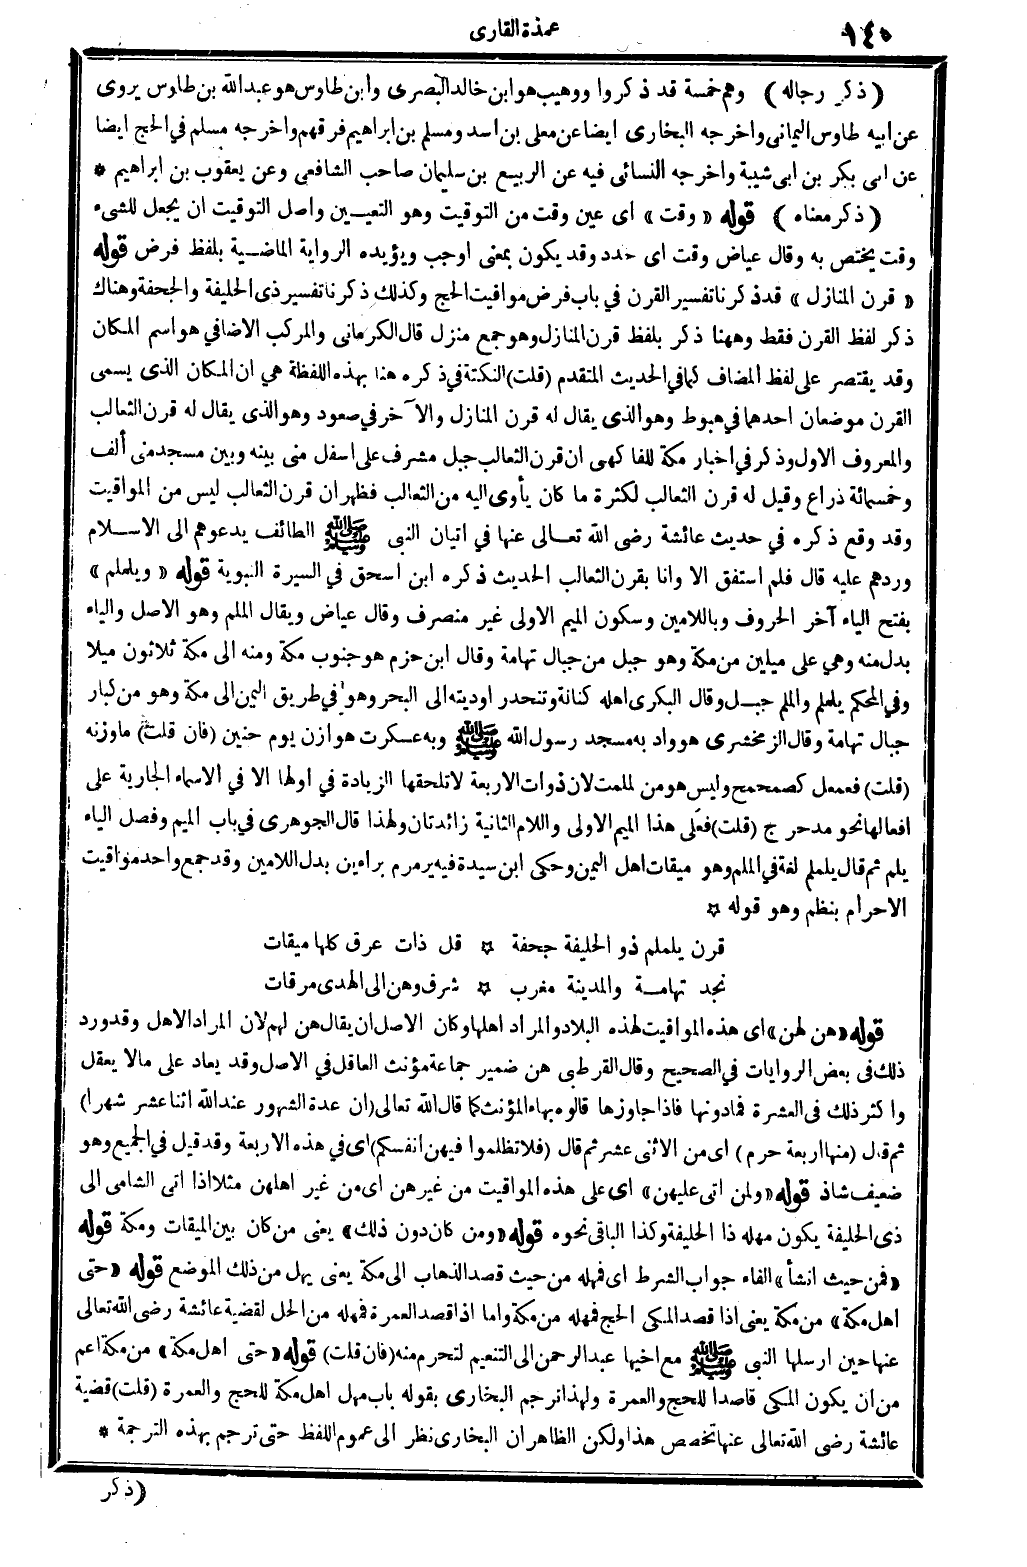 ١٤٠
عمدة القارى
( ذكر رجاله ) وهم خمسة قد ذكروا ووهيب هو ابن خالد البصرى وابن طاوس هو عبدالله بن طاوس يروى
عن ابيه طاوس اليمانى واخرجه البخارى ايضا عن معلى بن اسد ومسلم بن ابراهيم فرقهم واخرجه مسلم في الحج ايضا
عن ابى بكر بن ابى شيبة واخرجه النسائى فيه عن الربيع بن سليمان صاحب الشافعى وعن يعقوب بن ابراهيم *
( ذكر معناه ) قوله « وقت » اى عين وقت من التوقيت وهو التعيين واصل التوقيت ان يجعل للشىء
وقت يختص به وقال عياض وقت اى حدد وقد يكون بمعنى اوجب ويؤيده الرواية الماضية بلفظ فرض قوله
« قرن المنازل » قد ذكرنا تفسير القرن في باب فرض مواقيت الحج وكذلك ذكرنا تفسير ذى الحليفة والجحفة وهناك
ذكر لفظ القرن فقط وههنا ذكر بلفظ قرن المنازل وهو جمع منزل قال الكرمانى والمركب الاضافي هو اسم المكان
وقد يقتصر على لفظ المضاف كما في الحديث المتقدم (قلت) النكتة في ذكره هنا بهذه اللفظة هي ان المكان الذى يسمى
القرن موضعان احدهما في هبوط وهو الذى يقال له قرن المنازل والآخر في صعود وهو الذى يقال له قرن الثعالب
والمعروف الاول وذكر في اخبار مكة للفاكهى ان قرن الثعالب جبل مشرف على اسفل منى بينه وبين مسجد منى ألف
وخمسمائة ذراع وقيل له قرن الثعالب لكثرة ما كان يأوى اليه من الثعالب فظهر ان قرن الثعالب ليس من المواقيت
وقد وقع ذكره في حديث عائشة رضى الله تعالى عنها في اتيان النبى ﷺ الطائف يدعوهم الى الاسلام
وردهم عليه قال فلم استفق الا وانا بقرن الثعالب الحديث ذكره ابن اسحق في السيرة النبوية قوله « ويلملم »
بفتح الياء آخر الحروف وباللامين وسكون الميم الاولى غير منصرف وقال عياض ويقال الملم وهو الاصل والياء
بدل منه وهي على ميلين من مكة وهو جبل من جبال تهامة وقال ابن حزم هو جنوب مكة ومنه الى مكة ثلاثون ميلا
وفي المحكم يلملم والملم جبل وقال البكرى اهله كنانة وتنحدر اوديته الى البحر وهو في طريق اليمن الى مكة وهو من كبار
جبال تهامة وقال الزمخشرى هو واد به مسجد رسول الله ﷺ وبه عسكرت هوازن يوم حنين (فان قلت) ما وزنه
(قلت) فعمعل كصمحمح وليس هو من لملمت لان ذوات الاربعة لا تلحقها الزيادة في اولها الا في الاسماء الجارية على
افعالها نحو مدحرج (قلت) فعلى هذا الميم الاولى واللام الثانية زائدتان ولهذا قال الجوهرى في باب الميم وفصل الياء
يلم ثم قال يلملم لغة في الملم وهو ميقات اهل اليمن وحكى ابن سيدة فيه يرمرم براءين بدل اللامين وقد جمع واحد مواقيت
الاحرام بنظم وهو قوله ☆
قرن يلملم ذو الحليفة جحفة ☆ قل ذات عرق كلها ميقات
نجد تهامة والمدينة مغرب ☆ شرق وهن الى الهدى مرقات
قوله «هن لهن» اى هذه المواقيت لهذه البلاد والمراد اهلها وكان الاصل ان يقال هن لهم لان المراد الاهل وقد ورد
ذلك فى بعض الروايات في الصحيح وقال القرطبى هن ضمير جماعة مؤنث العاقل في الاصل وقد يعاد على مالا يعقل
واكثر ذلك فى العشرة فمادونها فاذا جاوزها قالوه بهاء المؤنث كما قال الله تعالى (ان عدة الشهور عند الله اثنا عشر شهرا)
ثم قال (منها اربعة حرم ) اى من الاثنى عشر ثم قال (فلا تظلموا فيهن انفسكم) اى في هذه الاربعة وقد قيل في الجميع وهو
ضعيف شاذ قوله «ولمن اتى عليهن» اى على هذه المواقيت من غيرهن اى من غير اهلهن مثلا اذا اتى الشامى الى
ذى الحليفة يكون مهله ذا الحليفة وكذا الباقى نحوه قوله «ومن كان دون ذلك» يعنى من كان بين الميقات ومكة قوله
«فمن حيث انشأ» الفاء جواب الشرط اى فمهله من حيث قصد الذهاب الى مكة يعنى يهل من ذلك الموضع قوله «حتى
اهل مكة» من مكة يعنى اذا قصد المكى الحج فمهله من مكة واما اذا قصد العمرة فمهله من الحل لقضية عائشة رضى الله تعالى
عنها حين ارسلها النبى ﷺ مع اخيها عبدالرحمن الى التنعيم لتحرم منه (فان قلت) قوله «حتى اهل مكة» من مكة اعم
من ان يكون المكى قاصدا للحج والعمرة ولهذا ترجم البخارى بقوله باب مهل اهل مكة للحج والعمرة (قلت) قضية
عائشة رضى الله تعالى عنها تخصص هذا ولكن الظاهر ان البخارى نظر الى عموم اللفظ حتى ترجم بهذه الترجمة *
(ذكر